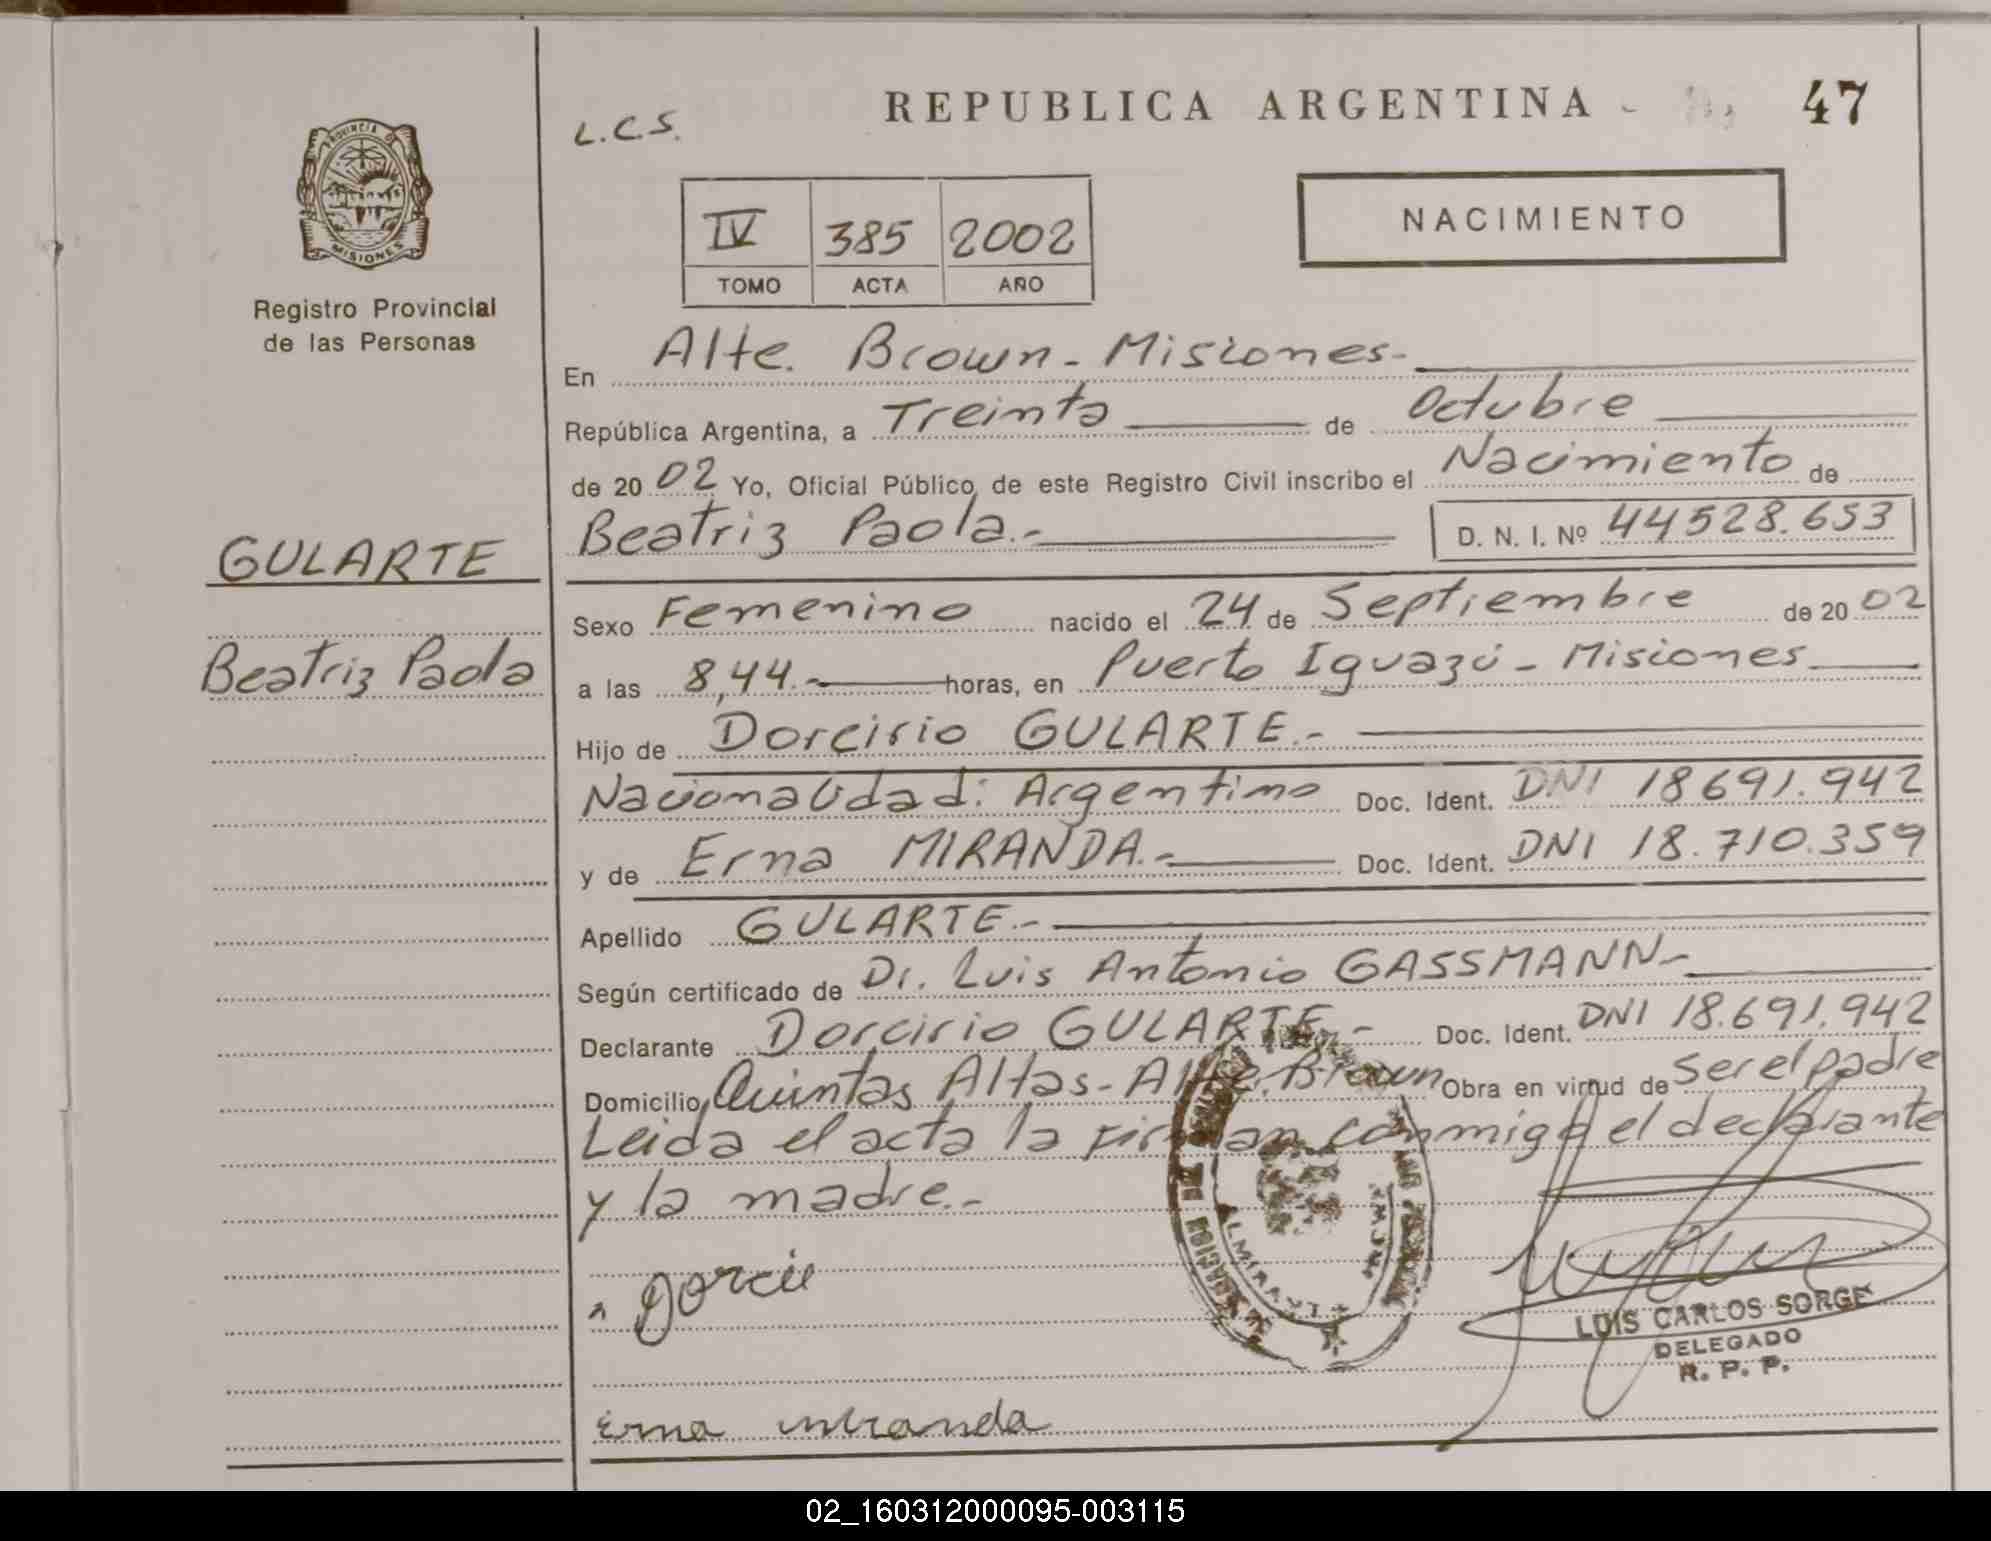 REPUBLICA ARGENTINA
47
L.C.S.
PROVINCIA DE
MISIONES
Registro Provincial
de las Personas
IV 385 2002
TOMO ACTA AÑO
NACIMIENTO
En Alte. Brown - Misiones -
República Argentina, a Treinta de Octubre
de 2002 Yo, Oficial Público de este Registro Civil inscribo el Nacimiento de
Beatriz Paola.- D. N. I. Nº 44528.653
GULARTE
Beatriz Paola
Sexo Femenino nacido el 24 de Septiembre de 2002
a las 8,44.- horas, en Puerto Iguazú - Misiones
Hijo de Dorcirio GULARTE.-
Nacionalidad: Argentino Doc. Ident. DNI 18691.942
y de Erna MIRANDA.- Doc. Ident. DNI 18.710.359
Apellido GULARTE.-
Según certificado de Dr. Luis Antonio GASSMANN-
Declarante Dorcirio GULARTE - Doc. Ident. DNI 18.691.942
Domicilio Quintas Altas - Alte. Brown Obra en virtud de ser el padre
Leida el acta la firman conmigo el declarante
y la madre.-
LUIS CARLOS SORGE
DELEGADO
R. P. P.
Erna miranda
02_160312000095-003115